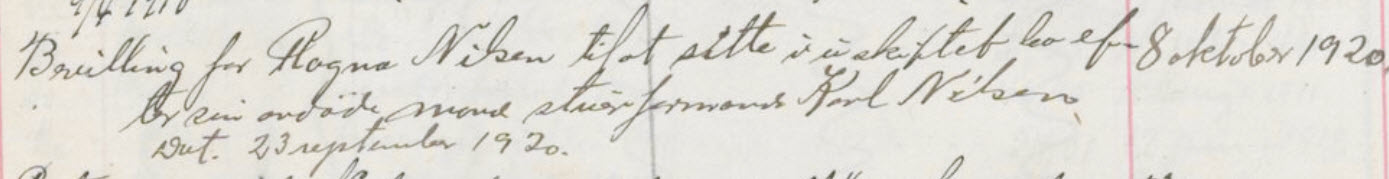 9/4 1918
Bevilling for Ragna Nilsen til at sitte i uskiftet bo ef- 8 oktober 1920.
ter sin avdöde mand stuerformand Karl Nilsen
Dat. 23 september 1920.